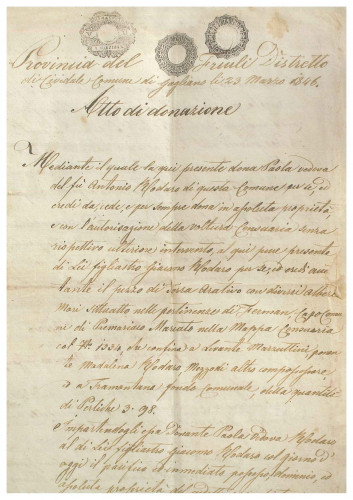 Provincia del Friuli Distretto
di Cividale Comune di Gagliano li 23 Marzo 1846.
Atto di donazione
Mediante il quale la qui presente dona Paola vedova
del fù Antonio Rodaro di questa Comune per se, ed
eredi da, cede, e per sempre dona in assoluta proprietà
e con l'autorizazione della voltura Censuaria senza
rispettivo ulteriore intervento, a qui pure presente
di Lei figliastro Giacomo Rodaro per se, ed eredi
tante il pezzo di Terra Arativo con diversi alberi
Mori situato nelle pertinenze di Firmano, Capo Comu
ni di Premariaco Marcato nella Mappa Censuaria
col N. 1334 da confina a Levante Marzuttini, ponen
te Madalena Rodaro, Mezzodì altro compossessore
ed a Tramontana fondo Comunale, della quantità
di Pertiche 3.98.
e Impartendogli essa Donante Paola Vedova Rodaro
al di Lei figliastro Giacomo Rodaro col giorno d'
oggi il pacifico ed immediato possesso, dominio, ed
assoluta proprietà del